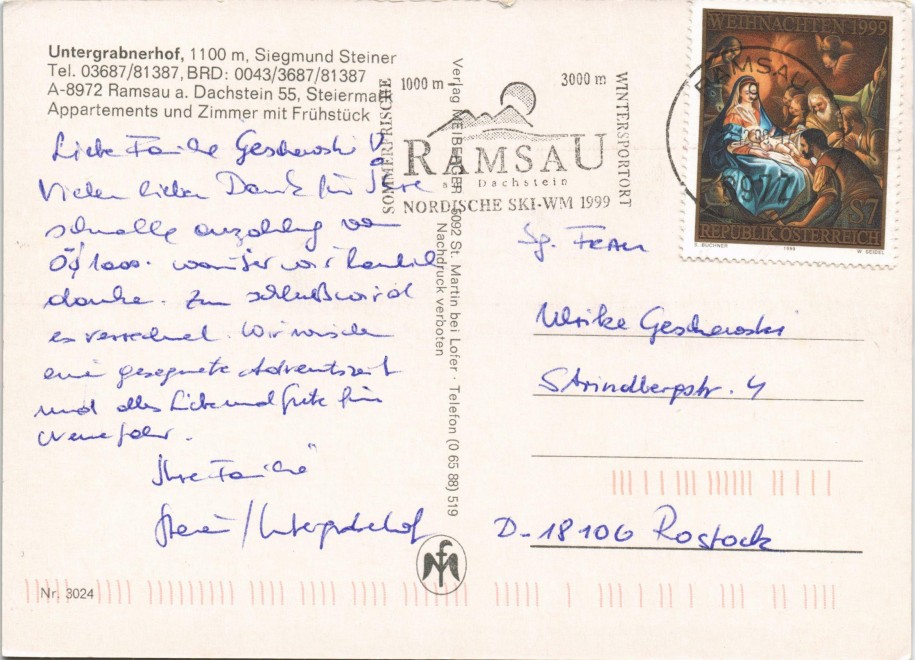 Untergrabnerhof, 1100 m, Siegmund Steiner
Tel. 03687/81387, BRD: 0043/3687/81387
A-8972 Ramsau a. Dachstein 55, Steiermark
Appartements und Zimmer mit Frühstück
Liebe Familie Geschewski!
Vielen lieben Dank für Ihre
schnelle anzahlung von
ÖS 1000.- wir
danke. Zum schluß wird
es verrechnet. Wir wünschen
eine gesegnete Adventszeit
und alles Liebe und Gute für
Neue Jahr.
Ihre Familie
Steiner/Untergrabnerhof
Nr. 3024
Verlag MEIBERGER 5092 St. Martin bei Lofer · Telefon (0 65 88) 519
Nachdruck verboten
SOMMERFRISCHE
1000 m
3000 m
WINTERSPORTORT
RAMSAU
am Dachstein
NORDISCHE SKI-WM 1999
WEIHNACHTEN 1999
S7
REPUBLIK ÖSTERREICH
S. BUCHNER 1999 W. SEIDEL
RAMSAU
8972
Sg. FRAU
Ulrike Geschewski
Strindbergstr. 4
D-18106 Rostock